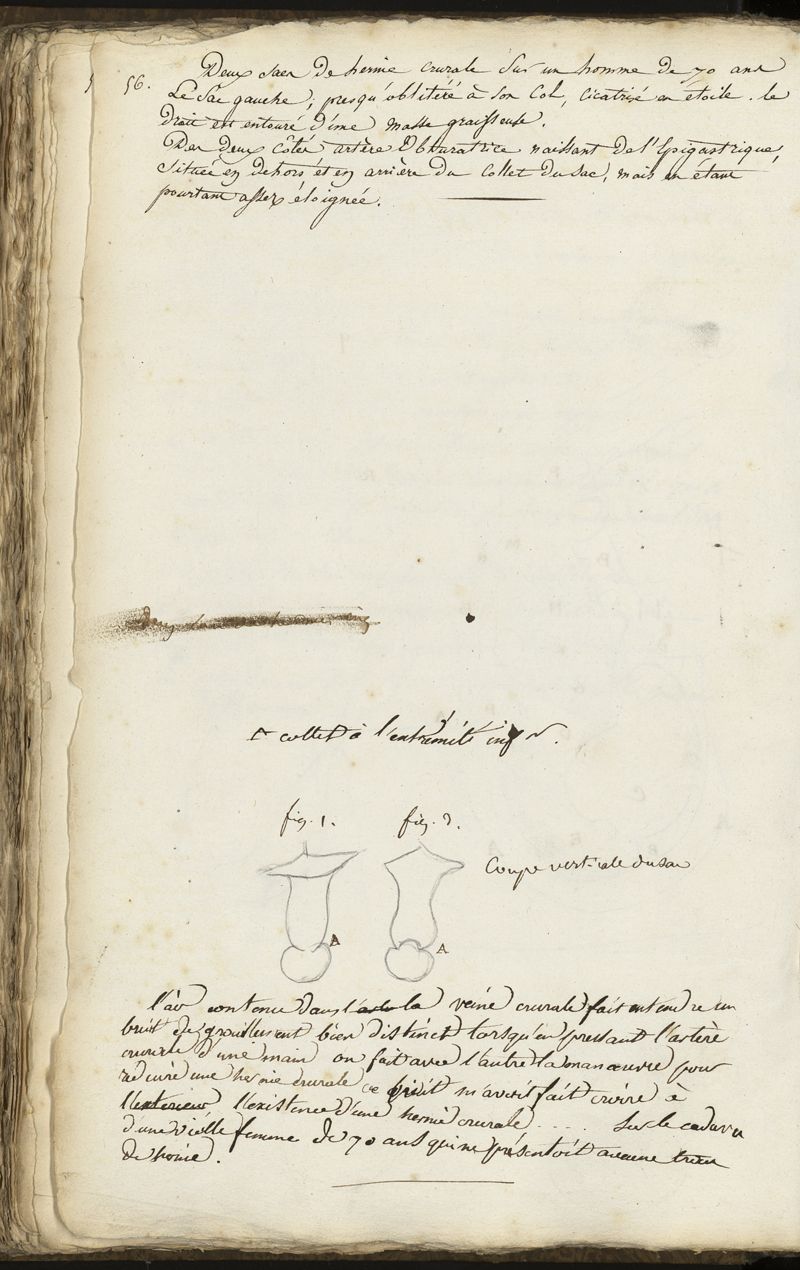 56. Deux sacs de hernie crurale sur un homme de 70 ans
Le Sac gauche, presqu'oblitéré à son Col, cicatrisé en étoile. le
droit est entouré d'une masse graisseuse.
Des deux côtés artère Obturatrice naissant de l'Epigastrique,
Située en dehors et en arrière du Collet du Sac, mais en étant
pourtant assez éloignée.
collet à l'extrémité inf
fig. 1. fig. 2.
Coupe verticale du sac
A A
l'air contenu dans la veine crurale fait entendre un
bruit de grouillement bien distinct lorsqu'en pressant l'artère
crurale d'une main on fait avec l'autre la manœuvre pour
réduire une hernie crurale ce bruit m'avoit fait croire à
l'exterieur, l'existence d'une hernie crurale .... Sur le cadavre
d'une vieille femme de 70 ans qui ne présentoit aucune trace
de hernie.